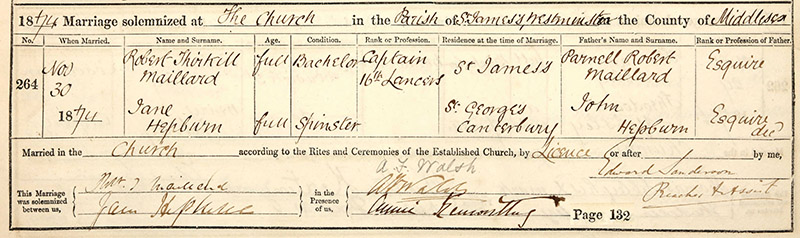 1874 Marriage solemnized at The Church in the Parish of St James's Westminster in the County of Middlesex
No. When Married. Name and Surname. Age. Condition. Rank or Profession. Residence at the time of Marriage. Father's Name and Surname. Rank or Profession of Father.
264 Nov 30 1874 Robert Thirkill Maillard full Bachelor Captain 16th Lancers St James's Parnell Robert Maillard Esquire
Jane Hepburn full Spinster St Georges Canterbury John Hepburn Esquire dec'd
Married in the Church according to the Rites and Ceremonies of the Established Church, by Licence or after by me,
Edward Sanderson
This Marriage was solemnized between us, Robt. T Maillard
Jane Hepburn
in the Presence of us, A. F. Walsh
Annie
Page 132